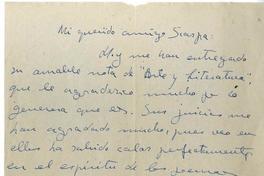 Mi querido amigo Scarpa:
Hoy me han entregado
su amable nota de "Arte y Literatura",
que le agradezco mucho por lo
generosa que es. Sus juicios me
han agradado mucho, pues veo en
ellos ha sabido calar perfectamente
en el espíritu de los poemas